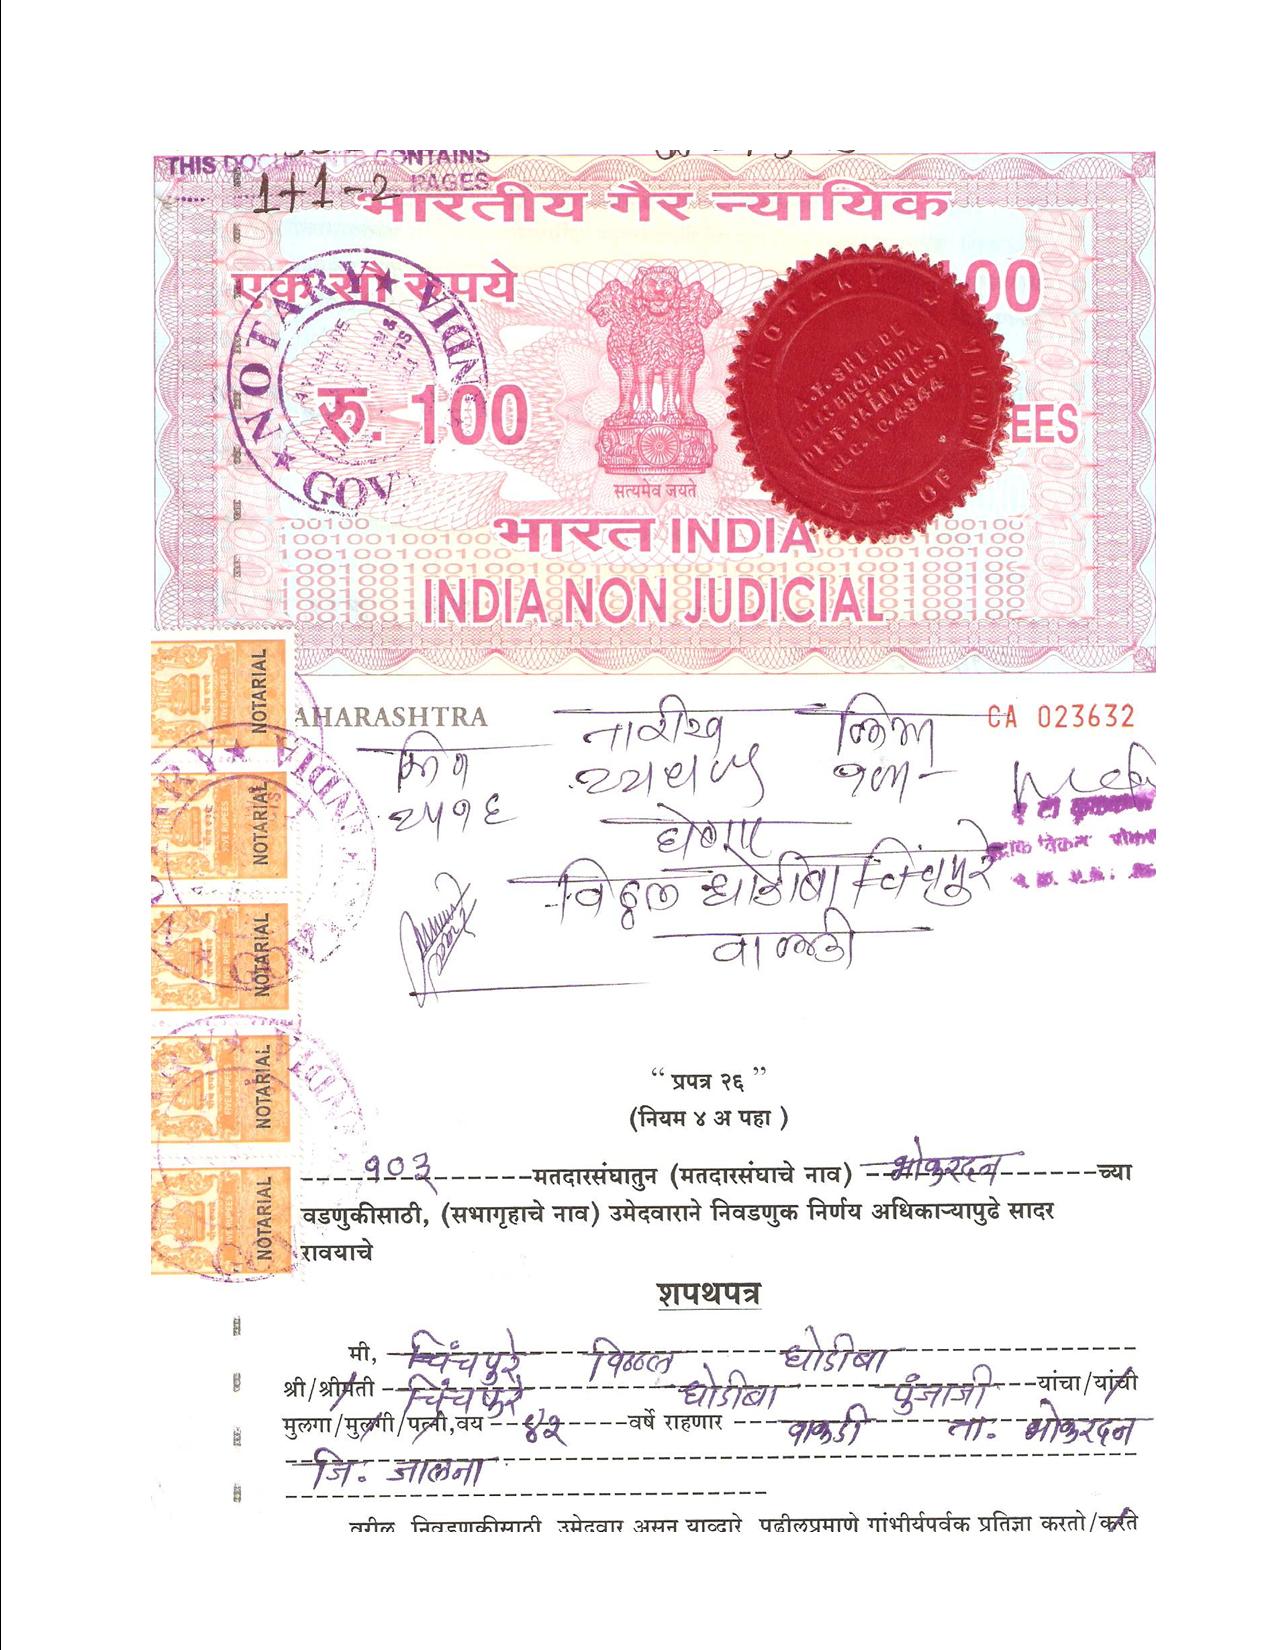 THIS DOCUMENTS CONTAINS
1+1-2 PAGES
भारतीय गैर न्यायिक
एक सौ रुपये
100
रु. 100
EES
NOTARY ★ INDIA ★ GOV
NOTARY
A.Y. SHE
DIST. JALNA (M.S.)
सत्यमेव जयते
भारत INDIA
INDIA NON JUDICIAL
AHARASHTRA
CA 023632
तारीख
२५१६
घेणार
विठ्ठल धोंडीबा चिंचपुरे
वाकडी
NOTARIAL
NOTARIAL
NOTARIAL
NOTARIAL
NOTARIAL
“ प्रपत्र २६ ”
(नियम ४ अ पहा )
१०३ मतदारसंघातुन (मतदारसंघाचे नाव) भोकरदन च्या
वडणुकीसाठी, (सभागृहाचे नाव) उमेदवाराने निवडणुक निर्णय अधिकाऱ्यापुढे सादर
रावयाचे
शपथपत्र
मी, चिंचपुरे विठ्ठल धोंडीबा
श्री/श्रीमती चिंचपुरे धोंडीबा पुंजाजी यांचा/यांची
मुलगा/मुलगी/पत्नी,वय ४२ वर्षे राहणार वाकडी ता. भोकरदन
जि. जालना
वरील निवडणुकीसाठी उमेदवार असून याव्दारे पुढीलप्रमाणे गांभीर्यपूर्वक प्रतिज्ञा करतो/करते